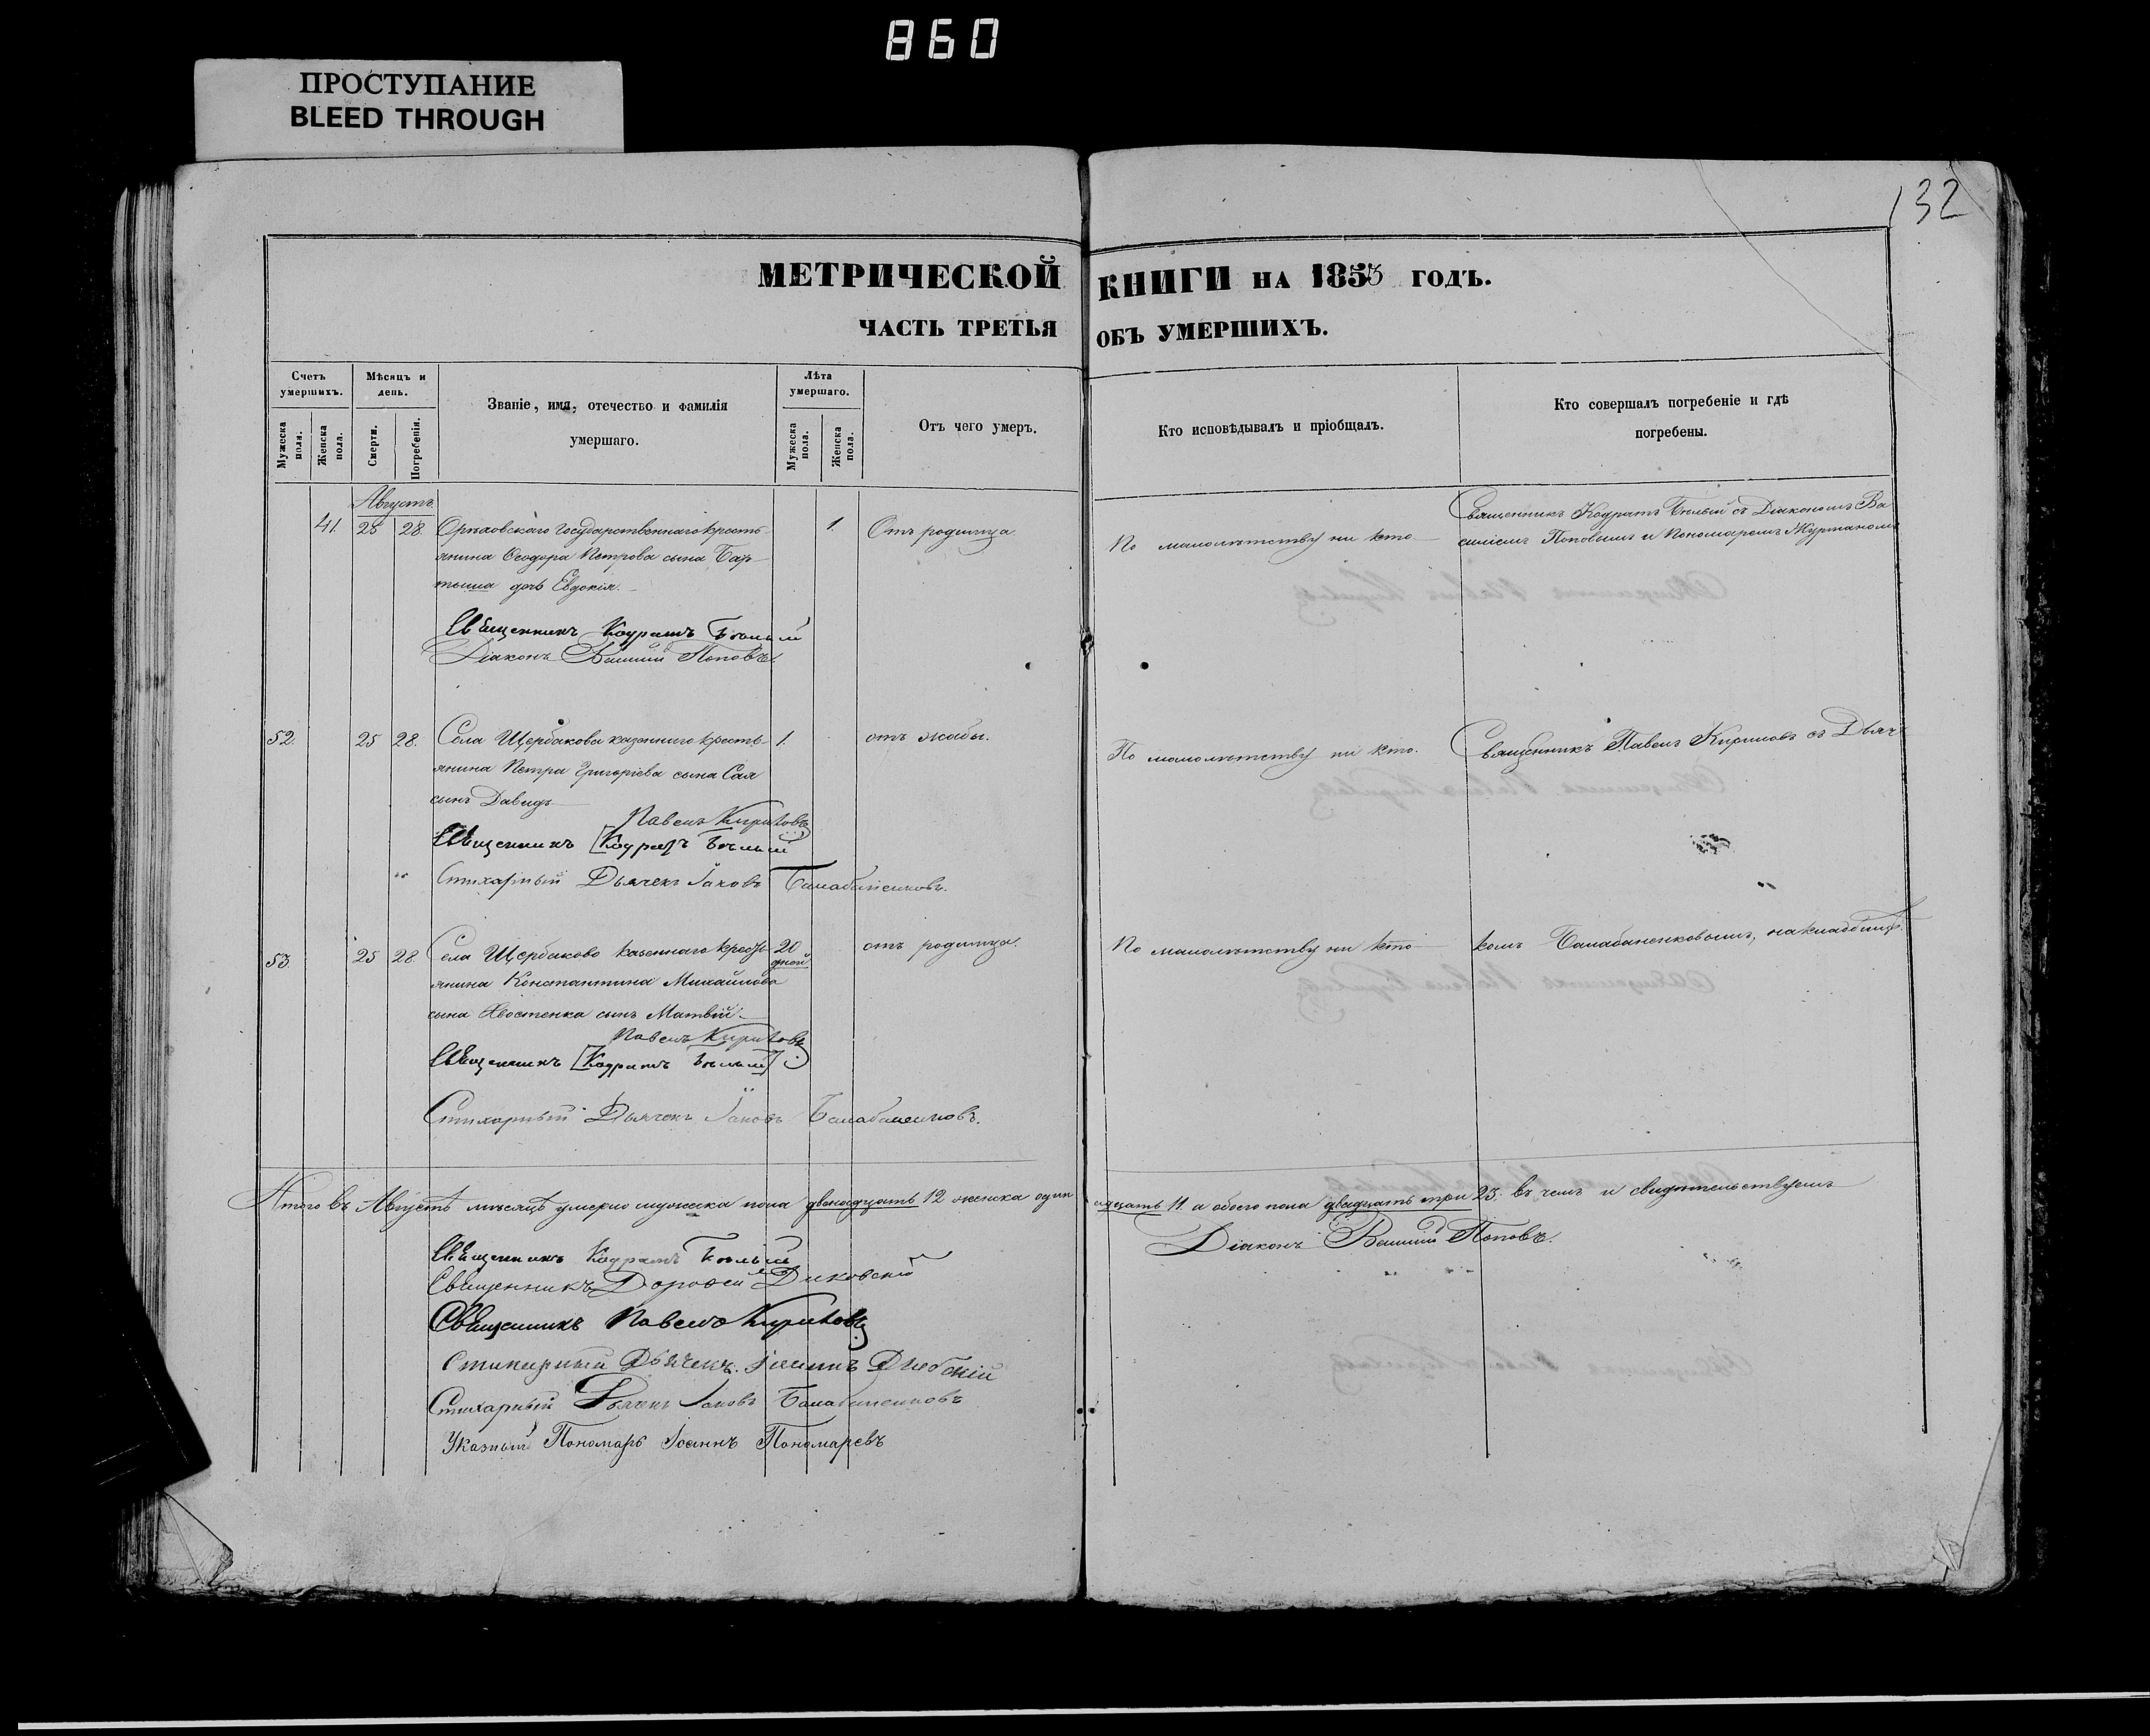 860
ПРОСТУПАНИЕ
BLEED THROUGH
132
МЕТРИЧЕСКОЙ КНИГИ НА 1853 ГОДЪ.
ЧАСТЬ ТРЕТЬЯ ОБЪ УМЕРШИХЪ.
Счетъ умершихъ.
Мужеска пола.
Женска пола.
Мѣсяцъ и день.
Смерти.
Погребенія.
Званіе, имя, отечество и фамилія умершаго.
Лѣта умершаго.
Мужеска пола.
Женска пола.
Отъ чего умеръ.
Кто исповѣдывалъ и пріобщалъ.
Кто совершалъ погребеніе и гдѣ погребены.
Августъ
41. 28. Орѣховскаго государственнаго кресть- 1. Отъ родимца
янина Ѳеодора Петрова сына
дочь Евдокія.
По малолѣтству ни кто
Священникъ Кодратъ Бѣлый съ Діакономъ Ва
силіемъ Поповымъ и Пономаремъ
Священникъ Кодратъ Бѣлый
Діаконъ Василій Поповъ.
52. 25 28. Села Щербакова казеннаго кресть- 1. отъ жабы.
янина Петра Григоріева сына Сая
сынъ Давидъ
По малолѣтству ни кто.
Священникъ Павелъ Кириловъ съ Дьяч
Павелъ Кириловъ
Священникъ [Кодратъ Бѣлый
Стихарный Дьячекъ Іаковъ Балабаненковъ.
53. 25 28. Села Щербаково казеннаго кресть- 20 дней отъ родимца.
янина Константина Михайлова
сына Хвостенка сынъ Матвѣй
По малолѣтству ни кто
комъ Балабаненковымъ, на кладбищѣ.
Павелъ Кириловъ
Священникъ [Кодратъ Бѣлый]
Стихарный Дьячекъ Іаковъ Балабаненковъ.
Итого въ Августѣ мѣсяцѣ умерло мужеска пола двенадцать 12 женска один надцать 11 а обоего пола двадцать три 23. въ чемъ и свидѣтельствуемъ
Священникъ Кодратъ Бѣлый
Діаконъ Василій Поповъ.
Священникъ Дорофей Диковскій
Священникъ Павелъ Кириловъ
Стихарный Дьячекъ Іоаннъ
Стихарный Дьячекъ Іаковъ Балабаненковъ
Указный Пономарь Іоаннъ Пономаревъ